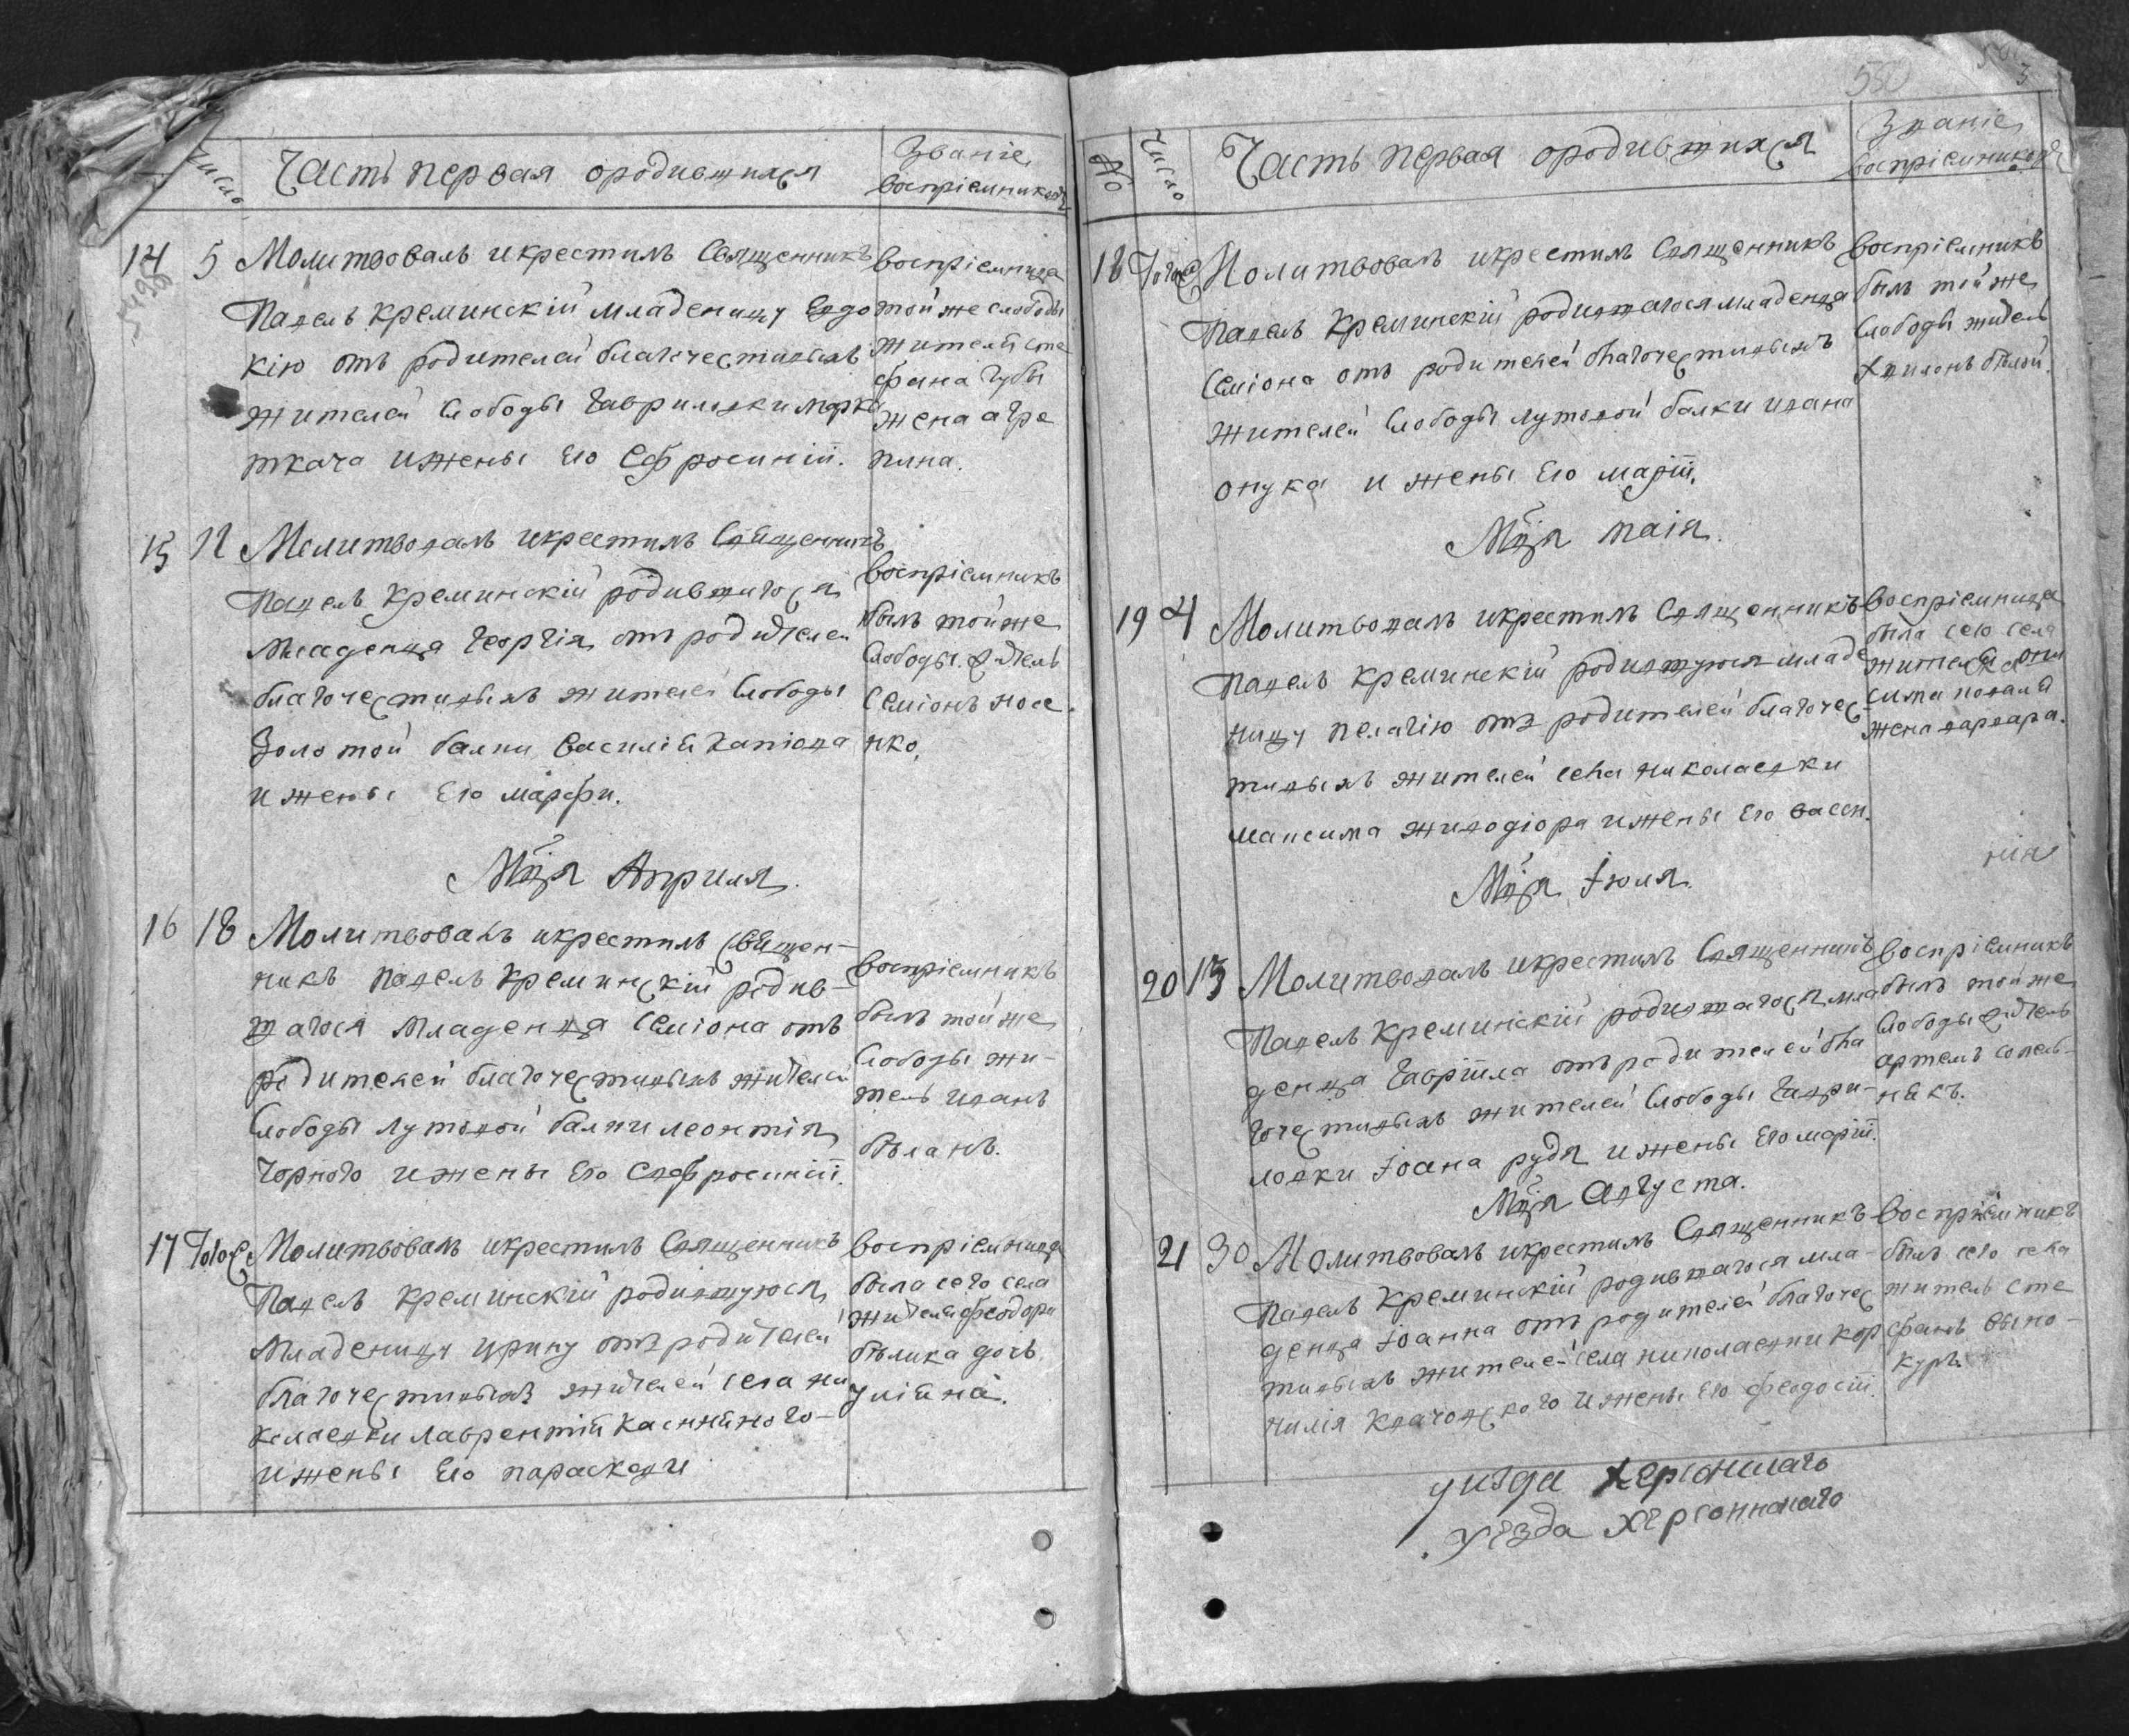 Число
Часть первая ородившихся
Званіе
воспріемниковъ
14 5 Молитвовалъ икрестилъ Священникъ
Павелъ Креминскій младеницу Евдо
кію отъ родителей благочестивыхъ
жителей слободы Гавриловки марка
ткача ижены Его Ефросиніи.
воспріемница
той же слободы
жителя сте
фана губы
жена агра
пина.
15 12 Молитвовалъ икрестилъ Священникъ
Павелъ Креминскій родившагося
Младенца Георгія отъ родителей
благочестивыхъ жителей Слободы
Золотой балки Василія
и жены Его Марфи.
воспріемникъ
былъ той же
Слободы житель
Семіонъ носе
нко.
Мц҃а Априля.
16 18 Молитвовалъ икрестилъ Священ-
никъ Павелъ Креминскій родив-
шагося Младенца Семіона отъ
родителей благочестивыхъ жителей
Слободы лутовой балки леонтія
Чорного ижены Его Евфросиніи.
воспріемникъ
былъ той же
Слободы жи-
тель иванъ
бѣланъ.
17 Тогоже Молитвовалъ икрестилъ Священникъ
Павелъ Креминскій родившуюся
Младеницу ирину отъ родителей
благочестивыхъ жителей села ни
колаевки Лаврентій
ижены Его параскеви
воспріемница
была сего села
жителя феодора
бѣлика дочь
уліяна.
550
3
№
Число
Часть первая ородившихся
Званіе
воспріемниковъ
18 Тогоже Молитвовалъ икрестилъ Священникъ
Павелъ Креминскій родившагося младенца
Семіона отъ родителей благочестивыхъ
жителей Слободы лутовой балки ивана
онука и жены Его маріи.
воспріемникъ
былъ той же
Слободы житель
бѣлой.
Мц҃а маія.
19 4 Молитвовалъ икрестилъ Священникъ
Павелъ Креминскій родившуюся младе
ницу пелагію отъ родителей благочес
тивыхъ жителей села николаевки
максима живодіора ижены Его васси.
нія
воспріемница
была сего села
жителя они
сима коваля
жена варвара.
Мц҃а Іюля.
20 13 Молитвовалъ икрестилъ Священникъ
Павелъ Креминскій родившагося мла
денца Гавріила отъ родителей бла
гочестивыхъ жителей Слободы Гаври-
ловки Іоана рудя ижены Его маріи.
воспріемникъ
былъ той же
Слободы житель
артемъ солев-
някъ.
Мц҃а Августа.
21 30 Молитвовалъ икрестилъ Священникъ
Павелъ Креминскій родившагося мла-
денца Іоанна отъ родителей благочес
тивыхъ жителей села николаевки кор
нилія ижены Его феодосіи.
воспріемникъ
былъ сего села
житель сте
фанъ
куръ
уизда херсонскаго
уезда херсонскаго